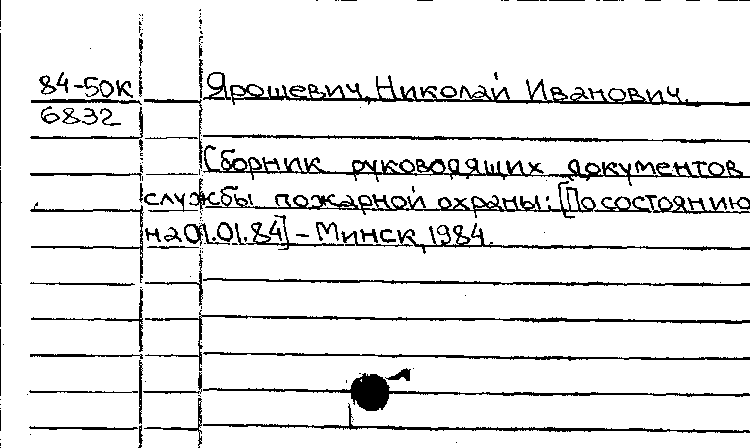 84-50к Ярошевич, Николай Иванович.
6832
Сборник руководящих документов
службы пожарной охраны: [По состоянию
на 01.01.84] - Минск, 1984.